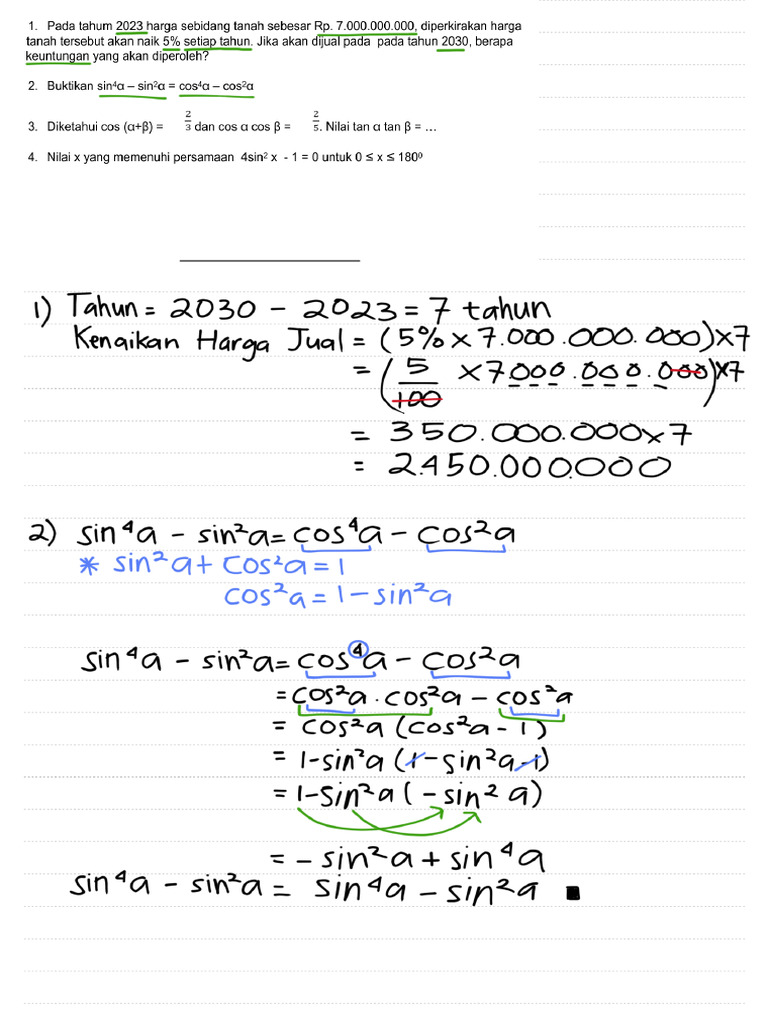 1. Pada tahum 2023 harga sebidang tanah sebesar Rp. 7.000.000.000, diperkirakan harga
tanah tersebut akan naik 5% setiap tahun. Jika akan dijual pada pada tahun 2030, berapa
keuntungan yang akan diperoleh?
2. Buktikan sin⁴α – sin²α = cos⁴α – cos²α
3. Diketahui cos (α+β) = 2/3 dan cos α cos β = 2/5. Nilai tan α tan β = …
4. Nilai x yang memenuhi persamaan 4sin² x - 1 = 0 untuk 0 ≤ x ≤ 180⁰
1) Tahun = 2030 - 2023 = 7 tahun
Kenaikan Harga Jual = (5% x 7.000.000.000) x 7
= (5/100 x 7000.000.000) x 7
= 350.000.000 x 7
= 2.450.000.000
2) sin⁴a - sin²a = cos⁴a - cos²a
* sin²a + cos²a = 1
cos²a = 1 - sin²a
sin⁴a - sin²a = cos⁴a - cos²a
= cos²a . cos²a - cos²a
= cos²a (cos²a - 1)
= 1 - sin²a (1 - sin²a - 1)
= 1 - sin²a (- sin² a)
= - sin²a + sin⁴a
sin⁴a - sin²a = sin⁴a - sin²a ■